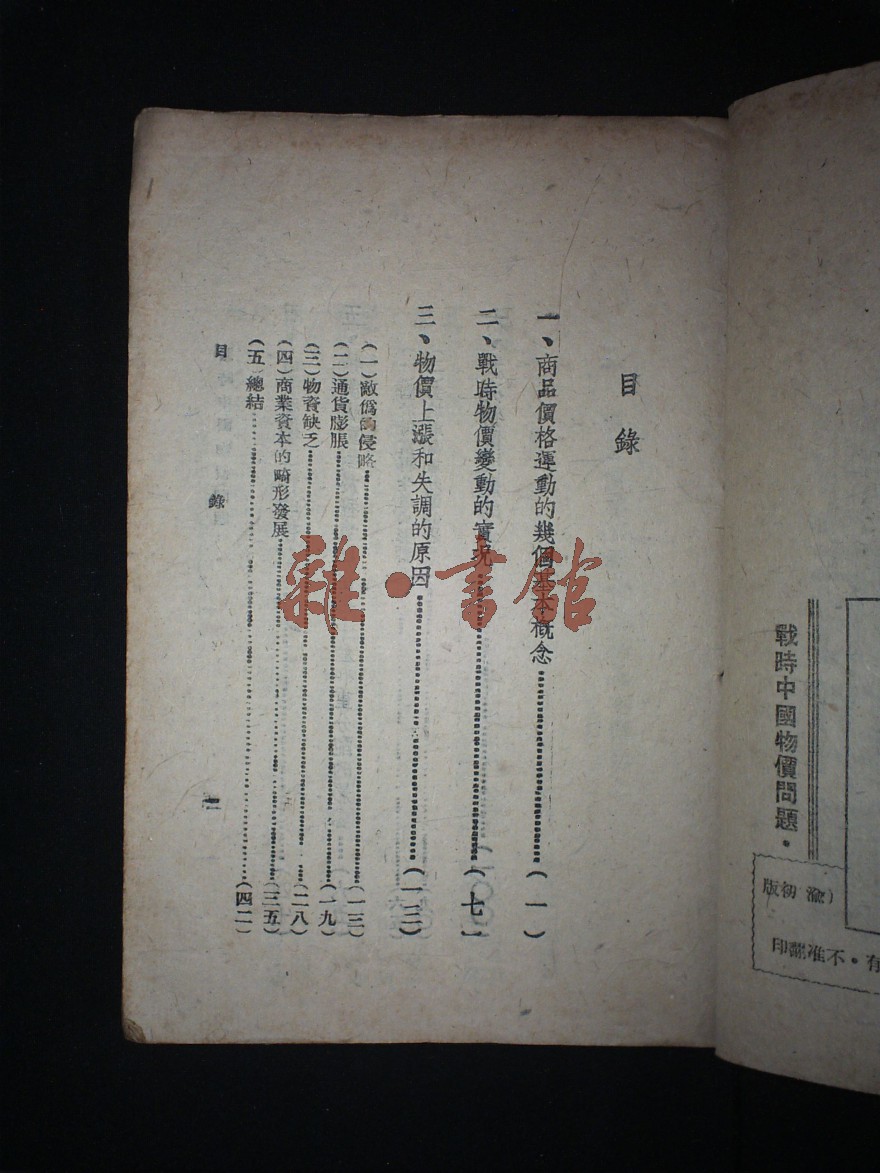 戰時中國物價問題・
（渝初版）
有・不准翻印
目錄
一、商品價格運動的幾個基本概念……（一）
二、戰時物價變動的實況……（七）
三、物價上漲和失調的原因……（一三）
（一）敵僞的侵略……（一三）
（二）通貨膨脹……（一九）
（三）物資缺乏……（二八）
（四）商業資本的畸形發展……（三五）
（五）總結……（四二）
目錄
雜・書館